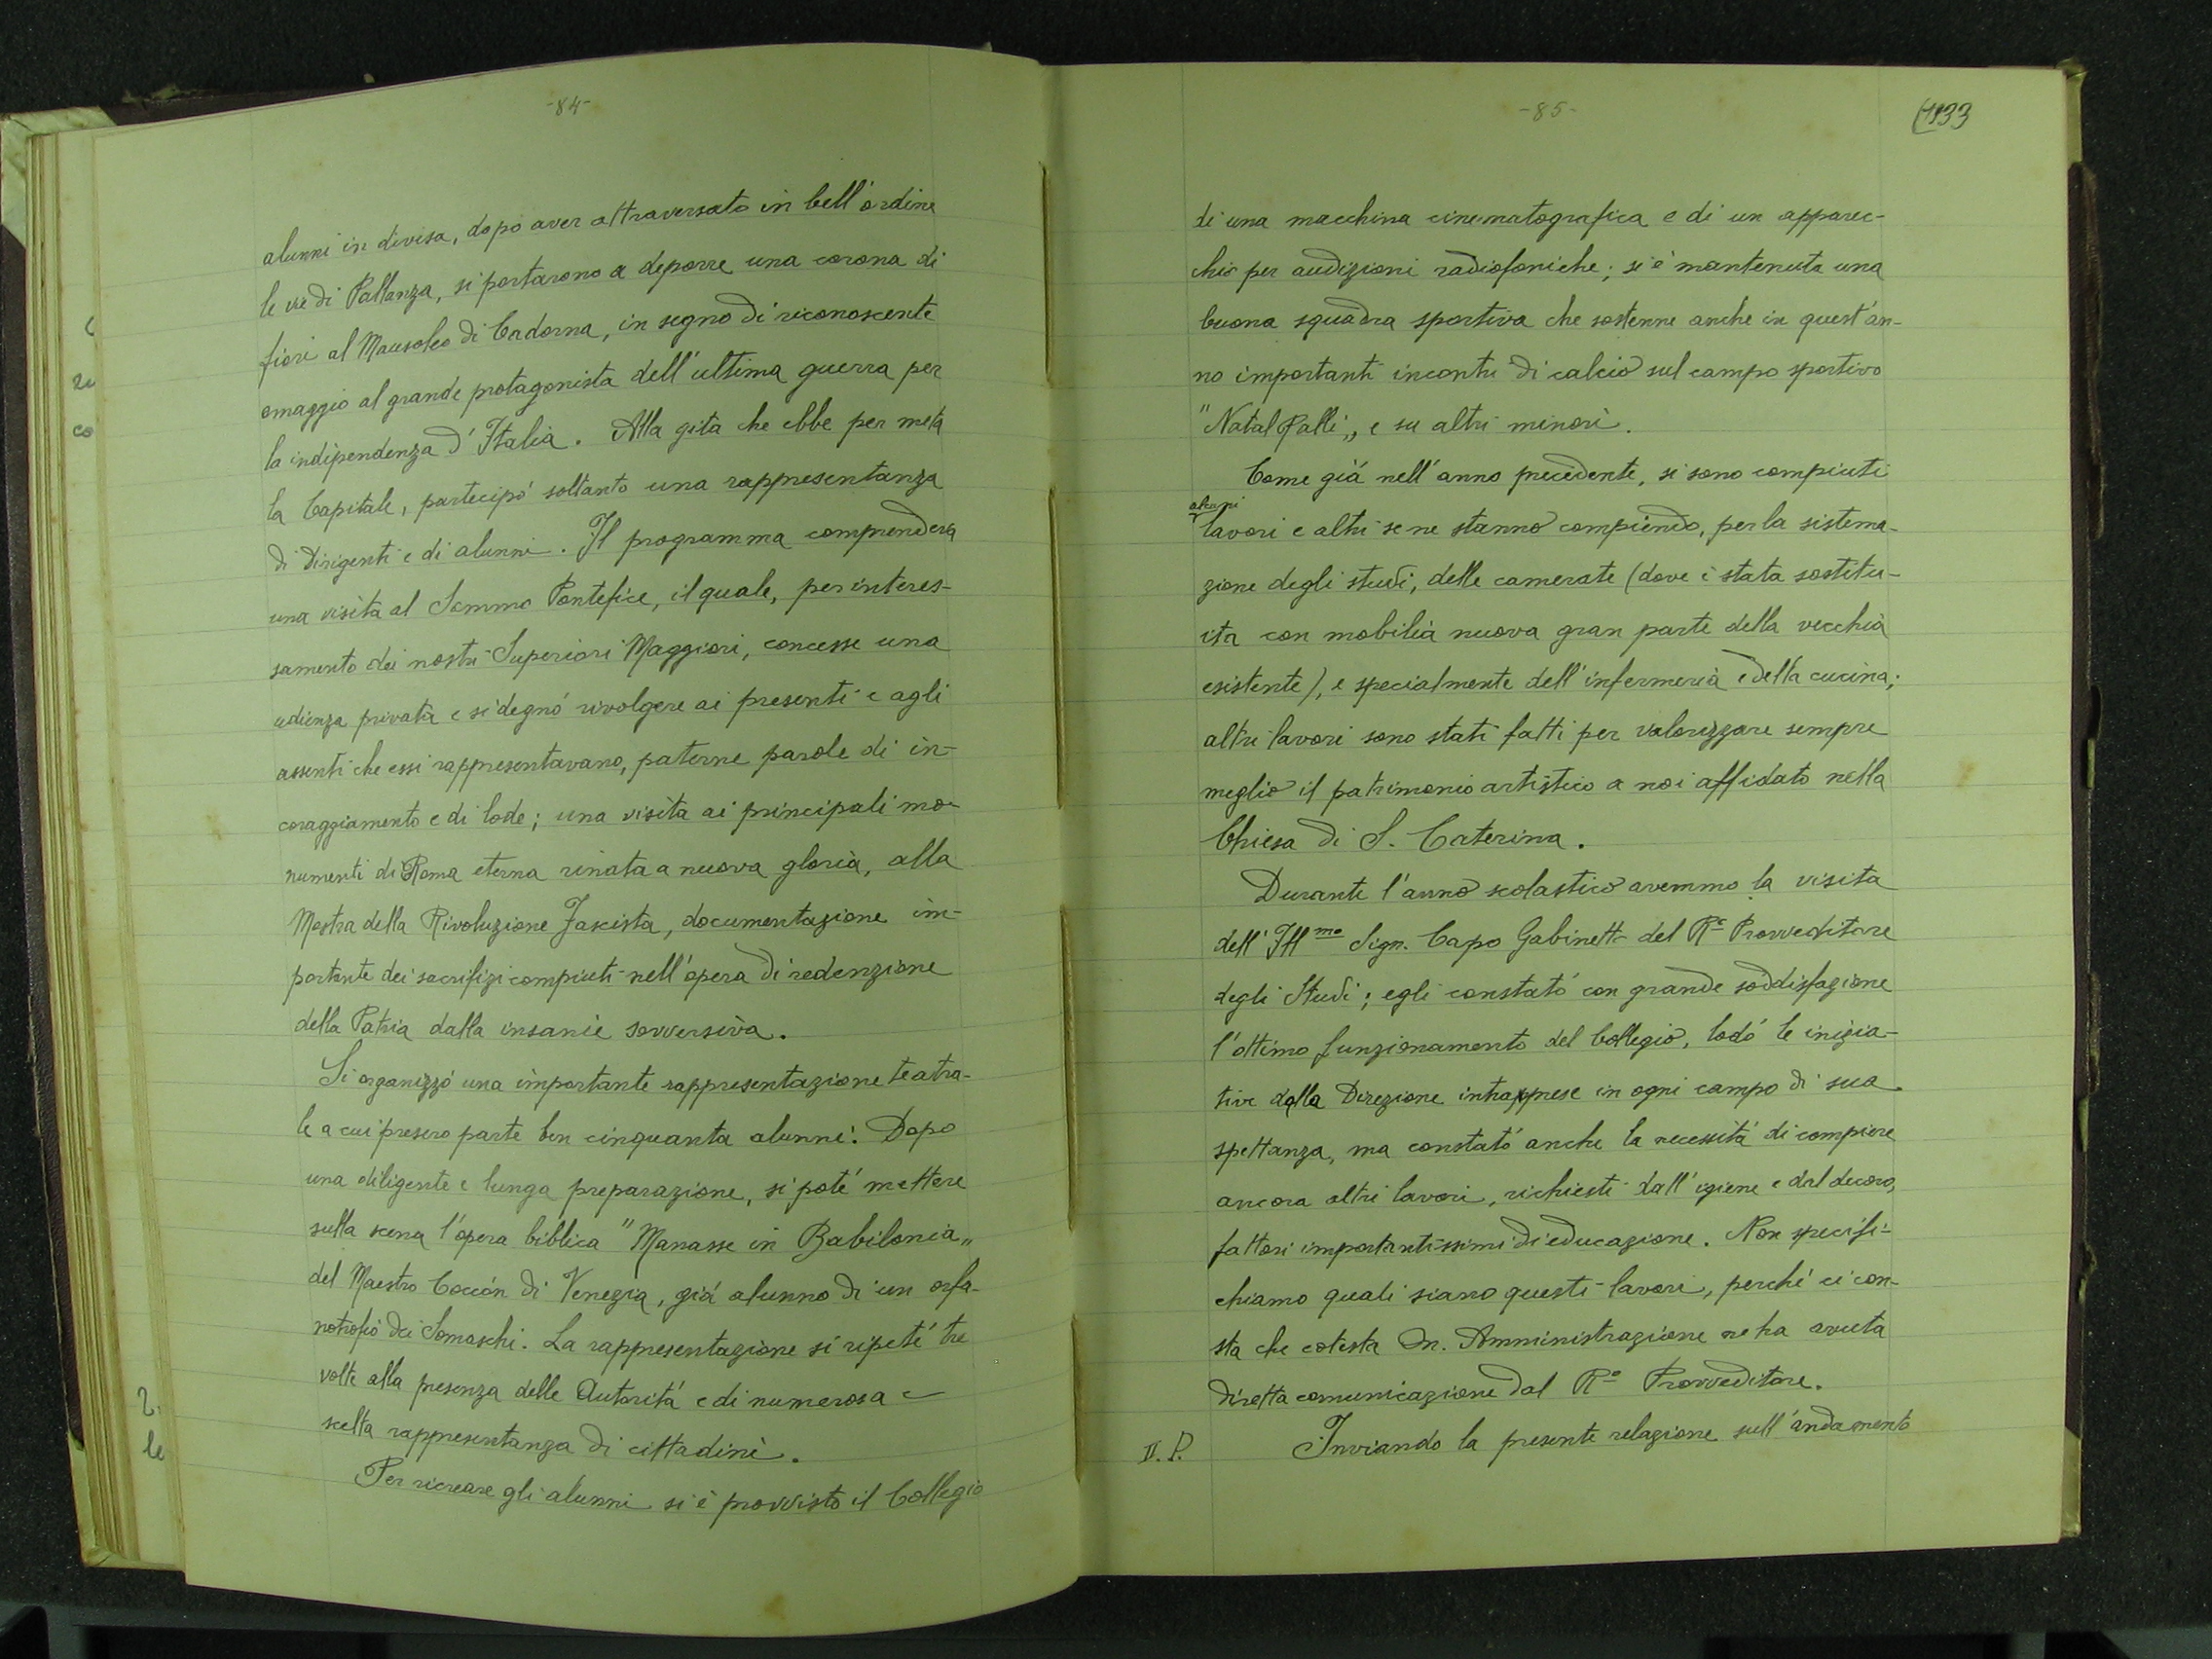 -84-
alunni in divisa, dopo aver attraversato in bell'ordine
le vie di Pallanza, si portarono a deporre una corona di
fiori al Mausoleo di Cadorna, in segno di riconoscente
omaggio al grande protagonista dell'ultima guerra per
la indipendenza d'Italia. Alla gita che ebbe per meta
la Capitale, partecipó soltanto una rappresentanza
di Dirigenti e di alunni. Il programma comprendeva
una visita al Sommo Pontefice, il quale, per interes-
samento dei nostri Superiori Maggiori, concesse una
udienza privata e si degnó rivolgere ai presenti e agli
assenti che essi rappresentavano, paterne parole di in-
coraggiamento e di lode; una visita ai principali mo-
numenti di Roma eterna rinata a nuova gloria, alla
Mostra della Rivoluzione Fascista, documentazione im-
portante dei sacrifizi compiuti nell'opera di redenzione
della Patria dalla insanie sovversiva.
Si organizzó una importante rappresentazione teatra-
le a cui presero parte ben cinquanta alunni. Dopo
una diligente e lunga preparazione, si poté mettere
sulla scena l'opera biblica "Manasse in Babilonia„
del Maestro Coccón di Venezia, giá alunno di un orfa-
notrofio dei Somaschi. La rappresentazione si ripeté tre
volte alla presenza delle Autoritá e di numerosa e
scelta rappresentanza di cittadini.
Per ricreare gli alunni si é provvisto il Collegio
-85-
1933
di una macchina cinematografica e di un apparec-
chio per audizioni radiofoniche; si é mantenuta una
buona squadra sportiva che sostenne anche in quest'an-
no importanti incontri di calcio sul campo sportivo
"Natal Palli„, e su altri minori.
Come giá nell'anno precedente, si sono compiuti
alcuni
lavori e altri se ne stanno compiendo, per la sistema-
zione degli studi, delle camerate (dove é stata sostitu-
ita con mobilia nuova gran parte della vecchia
esistente), e specialmente dell'infermeria e della cucina;
altri lavori sono stati fatti per valorizzare sempre
meglio il patrimonio artistico a noi affidato nella
Chiesa di S. Caterina.
Durante l'anno scolastico avemmo la visita
dell'Ill mo Sign. Capo Gabinetto del R.o Provveditore
degli Studi; egli constató con grande soddisfazione
l'ottimo funzionamento del Collegio, lodó le inizia-
tive dalla Direzione intrapprese in ogni campo di sua
spettanza, ma constató anche la necessitá di compiere
ancora altri lavori, richiesti dall'igiene e dal decoro,
fattori importantissimi di educazione. Non specifi-
chiamo quali siano questi lavori, perché ci con-
sta che cotesta On. Amministrazione ne ha avuta
diretta comunicazione dal R.o Provveditore.
Inviando la presente relazione sull'andamento